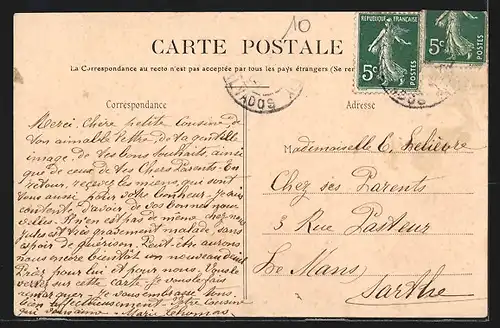 10
CARTE POSTALE
La Correspondance au recto n'est pas acceptée par tous les pays étrangers (Se ren
REPUBLIQUE FRANÇAISE
5c
POSTES
5c
POSTES
Correspondance
Adresse
Merci, Chère petite Cousine de
ton aimable lettre, de ta gentille
image, de tes bons souhaits, ainsi
que de ceux de tes Chers Parents. En
retour, recevez les miens, qui sont
tous aussi pour votre bonheur. Je suis
contente d'avoir de vos bonnes nou
velles. Il n'en est pas de même chez nous
Jules est très gravement malade, sans
espoir de guérison. Peut-être aurons
nous encore bientôt un nouveau deuil
Priez pour lui et pour nous. Vous le
verrez sur cette carte je vous le fais
remarquer. Je vous embrasse tous
bien affectueusement. Votre Cousine
qui vous aime Marie Thomas
Mademoiselle C. Lelièvre
Chez ses Parents
3 Rue Pasteur
Le Mans
Sarthe